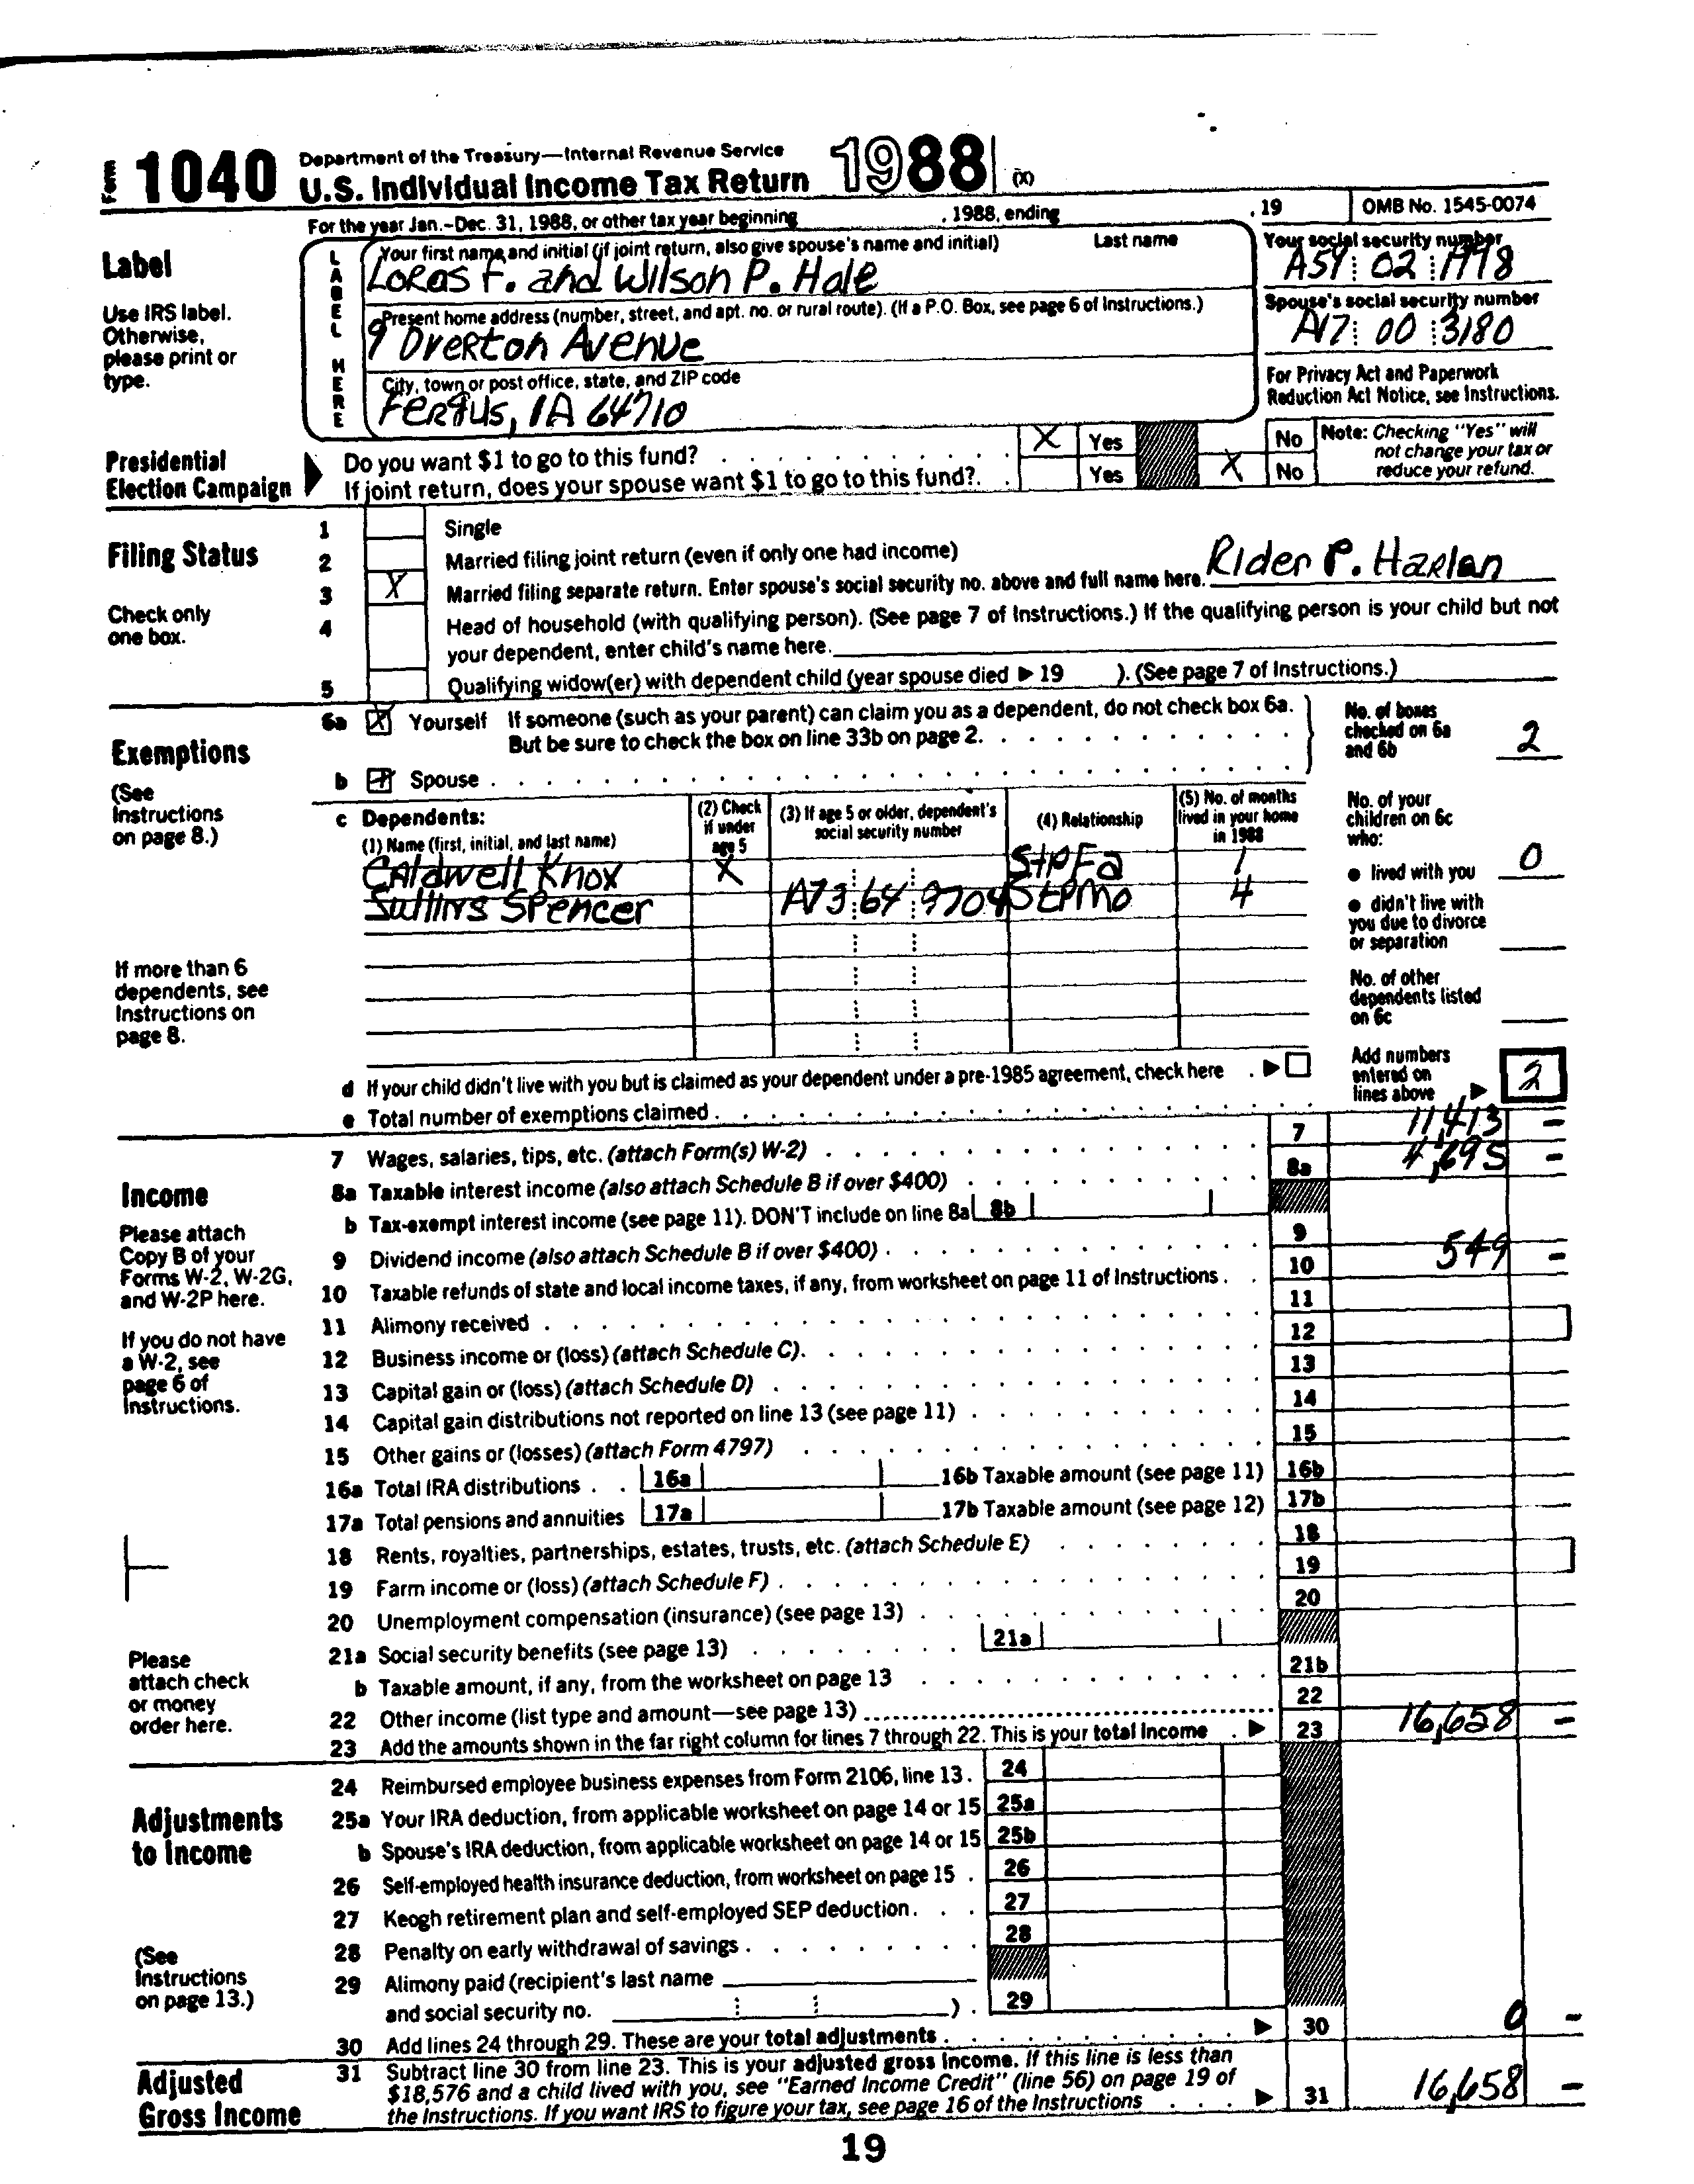 Form 1040 Department of the Treasury—Internal Revenue Service
U.S. Individual Income Tax Return 1988 (X)
For the year Jan.-Dec. 31, 1988, or other tax year beginning , 1988, ending , 19 OMB No. 1545-0074
Label
Use IRS label. Otherwise, please print or type.
LABEL HERE
Your first name and initial (if joint return, also give spouse's name and initial) Last name
Loras F. and Wilson P. Hale
Your social security number
A54 02 1998
Present home address (number, street, and apt. no. or rural route). (If a P.O. Box, see page 6 of Instructions.)
9 Overton Avenue
Spouse's social security number
A17 00 3180
City, town or post office, state, and ZIP code
Fergus, IA 64710
For Privacy Act and Paperwork
Reduction Act Notice, see Instructions.
Presidential Election Campaign
Do you want $1 to go to this fund? X Yes No
If joint return, does your spouse want $1 to go to this fund?. Yes X No
Note: Checking "Yes" will not change your tax or reduce your refund.
Filing Status
Check only one box.
1 Single
2 Married filing joint return (even if only one had income)
3 X Married filing separate return. Enter spouse's social security no. above and full name here. Rider P. Harlan
4 Head of household (with qualifying person). (See page 7 of Instructions.) If the qualifying person is your child but not
your dependent, enter child's name here.
5 Qualifying widow(er) with dependent child (year spouse died ▶ 19 ). (See page 7 of Instructions.)
Exemptions
(See Instructions on page 8.)
6a X Yourself If someone (such as your parent) can claim you as a dependent, do not check box 6a.
But be sure to check the box on line 33b on page 2.
b Spouse
No. of boxes checked on 6a and 6b 2
c Dependents:
(1) Name (first, initial, and last name)
(2) Check if under age 5
(3) If age 5 or older, dependent's social security number
(4) Relationship
(5) No. of months lived in your home in 1988
Caldwell Knox X StPFa 1
Sullins Spencer A73 64 9704 StPMo 4
No. of your children on 6c who:
● lived with you 0
● didn't live with you due to divorce or separation
No. of other dependents listed on 6c
If more than 6 dependents, see Instructions on page 8.
d If your child didn't live with you but is claimed as your dependent under a pre-1985 agreement, check here ▶
e Total number of exemptions claimed
Add numbers entered on lines above ▶ 2
Income
Please attach Copy B of your Forms W-2, W-2G, and W-2P here.
If you do not have a W-2, see page 6 of Instructions.
7 Wages, salaries, tips, etc. (attach Form(s) W-2) 7 11,413 –
8a Taxable interest income (also attach Schedule B if over $400) 8a 4,695 –
b Tax-exempt interest income (see page 11). DON'T include on line 8a 8b
9 Dividend income (also attach Schedule B if over $400) 9
10 Taxable refunds of state and local income taxes, if any, from worksheet on page 11 of Instructions. 10 549 –
11 Alimony received 11
12 Business income or (loss) (attach Schedule C). 12
13 Capital gain or (loss) (attach Schedule D) 13
14 Capital gain distributions not reported on line 13 (see page 11) 14
15 Other gains or (losses) (attach Form 4797) 15
16a Total IRA distributions 16a 16b Taxable amount (see page 11) 16b
17a Total pensions and annuities 17a 17b Taxable amount (see page 12) 17b
18 Rents, royalties, partnerships, estates, trusts, etc. (attach Schedule E) 18
19 Farm income or (loss) (attach Schedule F) 19
20 Unemployment compensation (insurance) (see page 13) 20
21a Social security benefits (see page 13) 21a
b Taxable amount, if any, from the worksheet on page 13 21b
22 Other income (list type and amount—see page 13) 22
23 Add the amounts shown in the far right column for lines 7 through 22. This is your total income ▶ 23 16,658 –
Please attach check or money order here.
Adjustments to Income
(See Instructions on page 13.)
24 Reimbursed employee business expenses from Form 2106, line 13. 24
25a Your IRA deduction, from applicable worksheet on page 14 or 15 25a
b Spouse's IRA deduction, from applicable worksheet on page 14 or 15 25b
26 Self-employed health insurance deduction, from worksheet on page 15 26
27 Keogh retirement plan and self-employed SEP deduction 27
28 Penalty on early withdrawal of savings 28
29 Alimony paid (recipient's last name
and social security no. ) . 29
30 Add lines 24 through 29. These are your total adjustments ▶ 30 0 –
Adjusted Gross Income
31 Subtract line 30 from line 23. This is your adjusted gross income. If this line is less than
$18,576 and a child lived with you, see "Earned Income Credit" (line 56) on page 19 of
the Instructions. If you want IRS to figure your tax, see page 16 of the Instructions ▶ 31 16,658 –
19